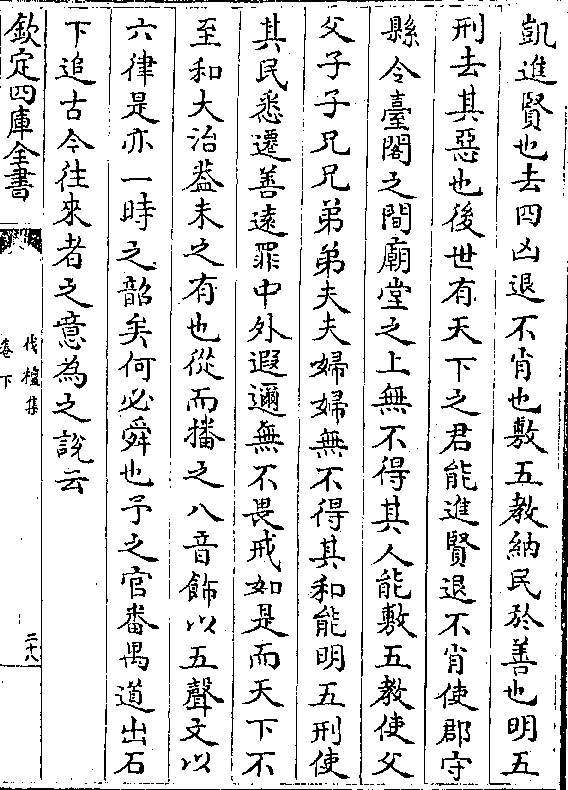 凱進賢也去四凶退不肖也敷五教納民於善也明五
刑去其惡也後世有天下之君能進賢退不肖使郡守
縣令臺閣之間廟堂之上無不得其人能敷五教使父
父子子兄兄弟弟夫夫婦婦無不得其和能明五刑使
其民悉遷善逺罪中外遐邇無不畏戒如是而天下不
至和大治葢未之有也從而播之八音飾以五聲文以
六律是亦一時之韶矣何必舜也予之官番禺道出石
下追古今徃來者之意為之說云
欽定四庫全書
伐檀集
卷下
二十八